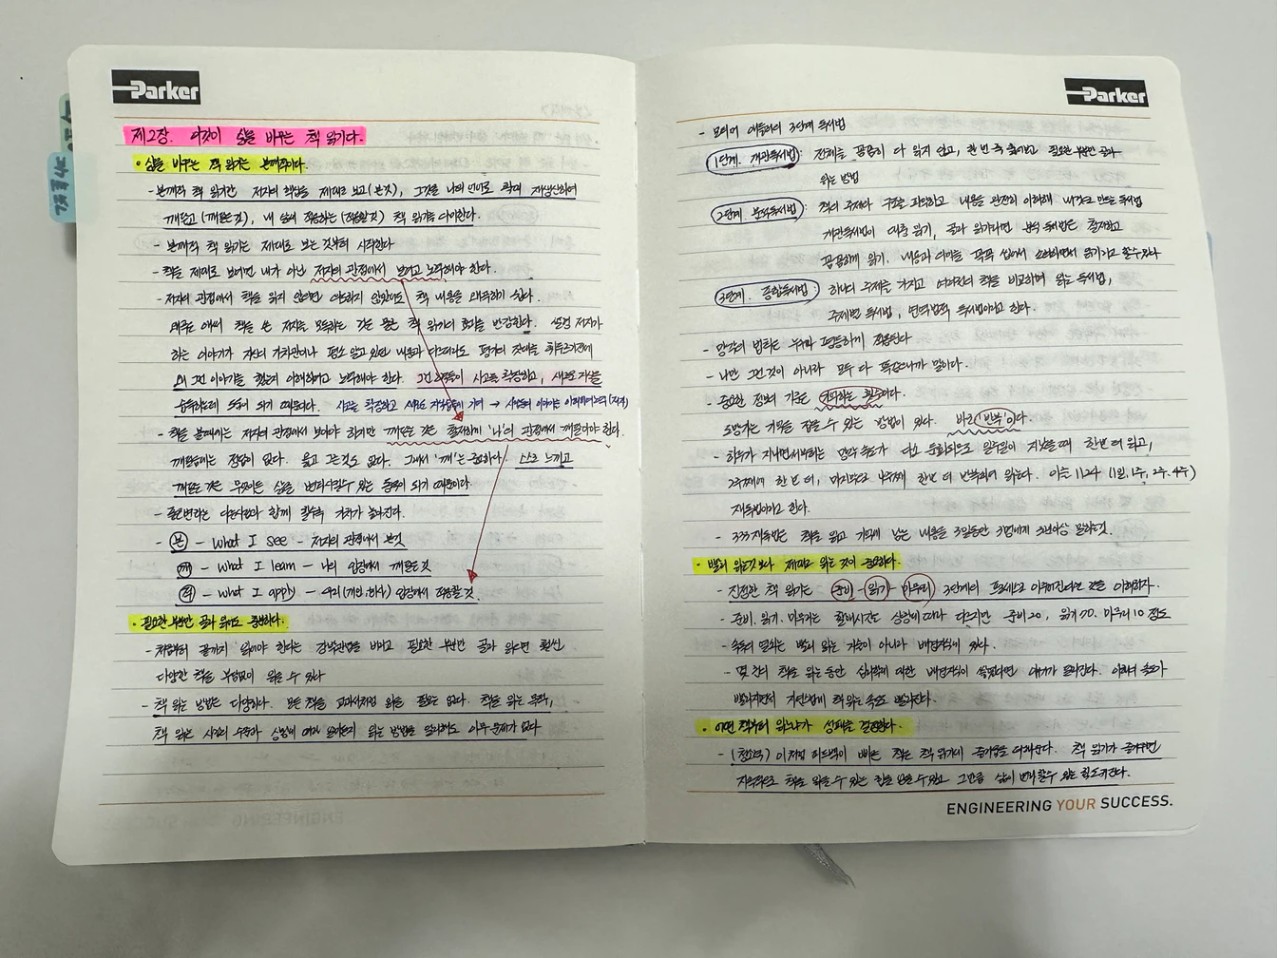 Parker
제2장. 이것이 삶을 바꾸는 책 읽기다.
• 삶을 바꾸는 책 읽기는 본깨적이다.
- 본깨적 책 읽기란 저자의 핵심을 제대로 보고(본것), 그것을 나의 언어로 확대 재생산하여
깨닫고(깨달은것), 내 삶에 적용하는(적용할것) 책 읽기를 의미한다.
- 본깨적 책 읽기는 제대로 보는 것부터 시작한다
- 책을 제대로 보려면 내가 아닌 저자의 관점에서 보려고 노력해야 한다.
- 저자의 관점에서 책을 읽지 않으면 의도하지 않았어도 책 내용을 왜곡하기 쉽다.
책 읽기의 효과를 반감한다. 설령 저자가
하는 이야기가 자신의 가치관이나 평소 알고 있던 내용과 다르더라도
왜 그런 이야기를 했는지 이해하려고 노력해야 한다. 그런 과정이 사고를 확장하고, 새로운 지식을
습득하는데 도움이 되기 때문이다.
- 책을 볼때에는 저자의 관점에서 보아야 하지만 깨닫는 것은 철저하게 '나'의 관점에서 깨달아야 한다.
깨달음에는 정답이 없다. 옳고 그른것도 없다. 그래서 '깨'는 중요하다. 스스로 느끼고
깨달은 것은 무엇이든 삶을 변화시킬수 있는 동력이 되기 때문이다
- 다른사람과 함께 할수록 커진다.
- 본 - What I see - 저자의 관점에서 본것
깨 - What I learn - 나의 입장에서 깨달은 것
적 - What I apply - 우리(개인, 회사) 입장에서 적용할 것.
• 필요한 부분만 골라 읽어도 충분하다.
- 처음부터 끝까지 읽어야 한다는 강박관념을 버리고 필요한 부분만 골라 읽으면 훨씬
다양한 책을 부담없이 읽을 수 있다
- 책 읽는 방법은 다양하다. 모든 책을 교과서처럼 읽을 필요는 없다. 책을 읽는 목적,
책 읽는 사람의 수준과 상황에 따라 읽는 방법을 달리해도 아무 문제가 없다
Parker
- 모티머 애들러의 3단계 독서법
1단계. 개관독서법: 전체를 꼼꼼히 다 읽지 않고, 한 번 죽 훑어보고 필요한 부분만 골라
읽는 방법
2단계. 분석독서법: 책의 주제와 구조를 파악하고 내용을 완전히 이해해 내것으로 만드는 독서법
개관독서법이 대충 읽기, 골라 읽기라면 분석 독서법은 철저하고
꼼꼼하게 읽기. 내용과 의미를 꼭꼭 씹어서 읽기라고 할수 있다
3단계. 종합독서법: 하나의 주제를 가지고 여러권의 책을 비교하며 읽는 독서법,
주제별 독서법, 독서법이라고 한다.
- 망각의 법칙은 누구나 평등하게 적용된다
- 나만 그런것이 아니라 모두 다 똑같으니까 말이다.
- 중요한 정보의 기준은 이다.
도망가는 기억을 잡을 수 있는 방법이 있다. 바로 '반복'이다.
- 하루가 지나면 일주일이 지났을때 한번 더 읽고,
2주째에 한 번 더, 마지막으로 4주째에 한번 더 반복하여 읽는다. 이를 1124 (1일, 1주, 2주, 4주)
재독법이라고 한다.
- 333재독법은 책을 읽고 기억에 남는 내용을 3일동안 3명에게 3번이상 말하는것.
• 빨리 읽는것보다 제대로 읽는 것이 중요하다.
- 진정한 책 읽기는 준비 - 읽기 - 마무리 3단계의 프로세스로 이루어진다는 것을 이해하자.
- 준비, 읽기, 마무리는 할애시간은 상황에 따라 다르지만 준비 20, 읽기 70, 마무리 10 정도
- 속독의 열쇠는 빨리 읽는 기술이 아니라 배경지식에 있다.
- 몇 권의 책을 읽는 동안 심리학에 대한 배경지식이 쌓였다면 얘기가 달라진다. 이해의 속도가
빨라지면서 자연스럽게 책 읽는 속도도 빨라진다.
• 어떤 책부터 읽느냐가 성패를 결정한다.
- 이처럼 피드백이 빠른 책은 책 읽기의 즐거움을 더해준다. 책 읽기가 즐거우면
지속적으로 책을 읽을 수 있는 힘을 얻을 수 있고 그만큼 삶이 변화할수 있는 힘도 커진다.
ENGINEERING YOUR SUCCESS.